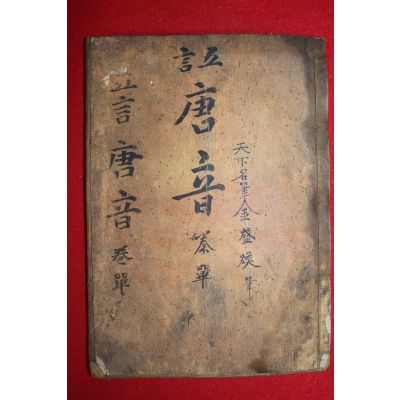 天下名筆金盛筆
五言
唐音 單
五言唐音 卷單